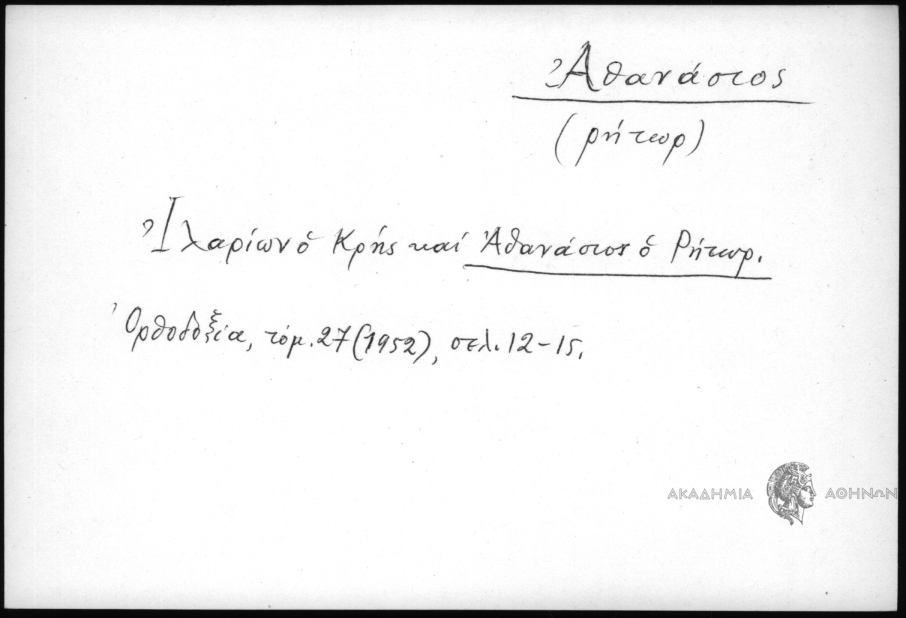 Ἀθανάσιος
(ρήτωρ)
Ἱλαρίων ὁ Κρής καί Ἀθανάσιος ὁ Ρήτωρ.
Ὀρθοδοξία, τόμ. 27 (1952), σελ. 12-15.
ΑΚΑΔΗΜΙΑ ΑΘΗΝΩΝ